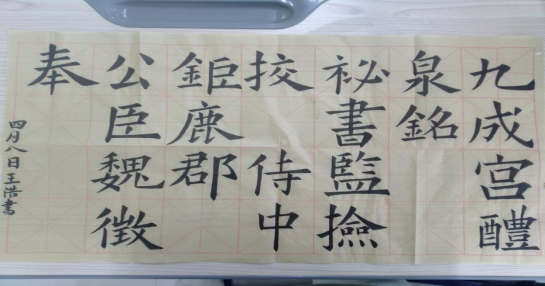 九成宫醴
泉銘
祕書監撿
挍侍中
鉅鹿郡
公臣魏徵
奉
四月八日王浩書